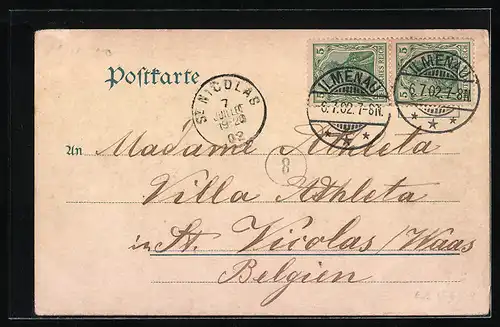 Postkarte
5 DEUTSCHES REICH 5
ILMENAU
6.7.02.7-8N.
* * *
ILMENAU
6.7.02.7-8N.
* * *
ST NICOLAS
7
JUILLET
19-20
02
8
An Madame Athleta
Villa Athleta
in St. Nicolas/Waas
Belgien